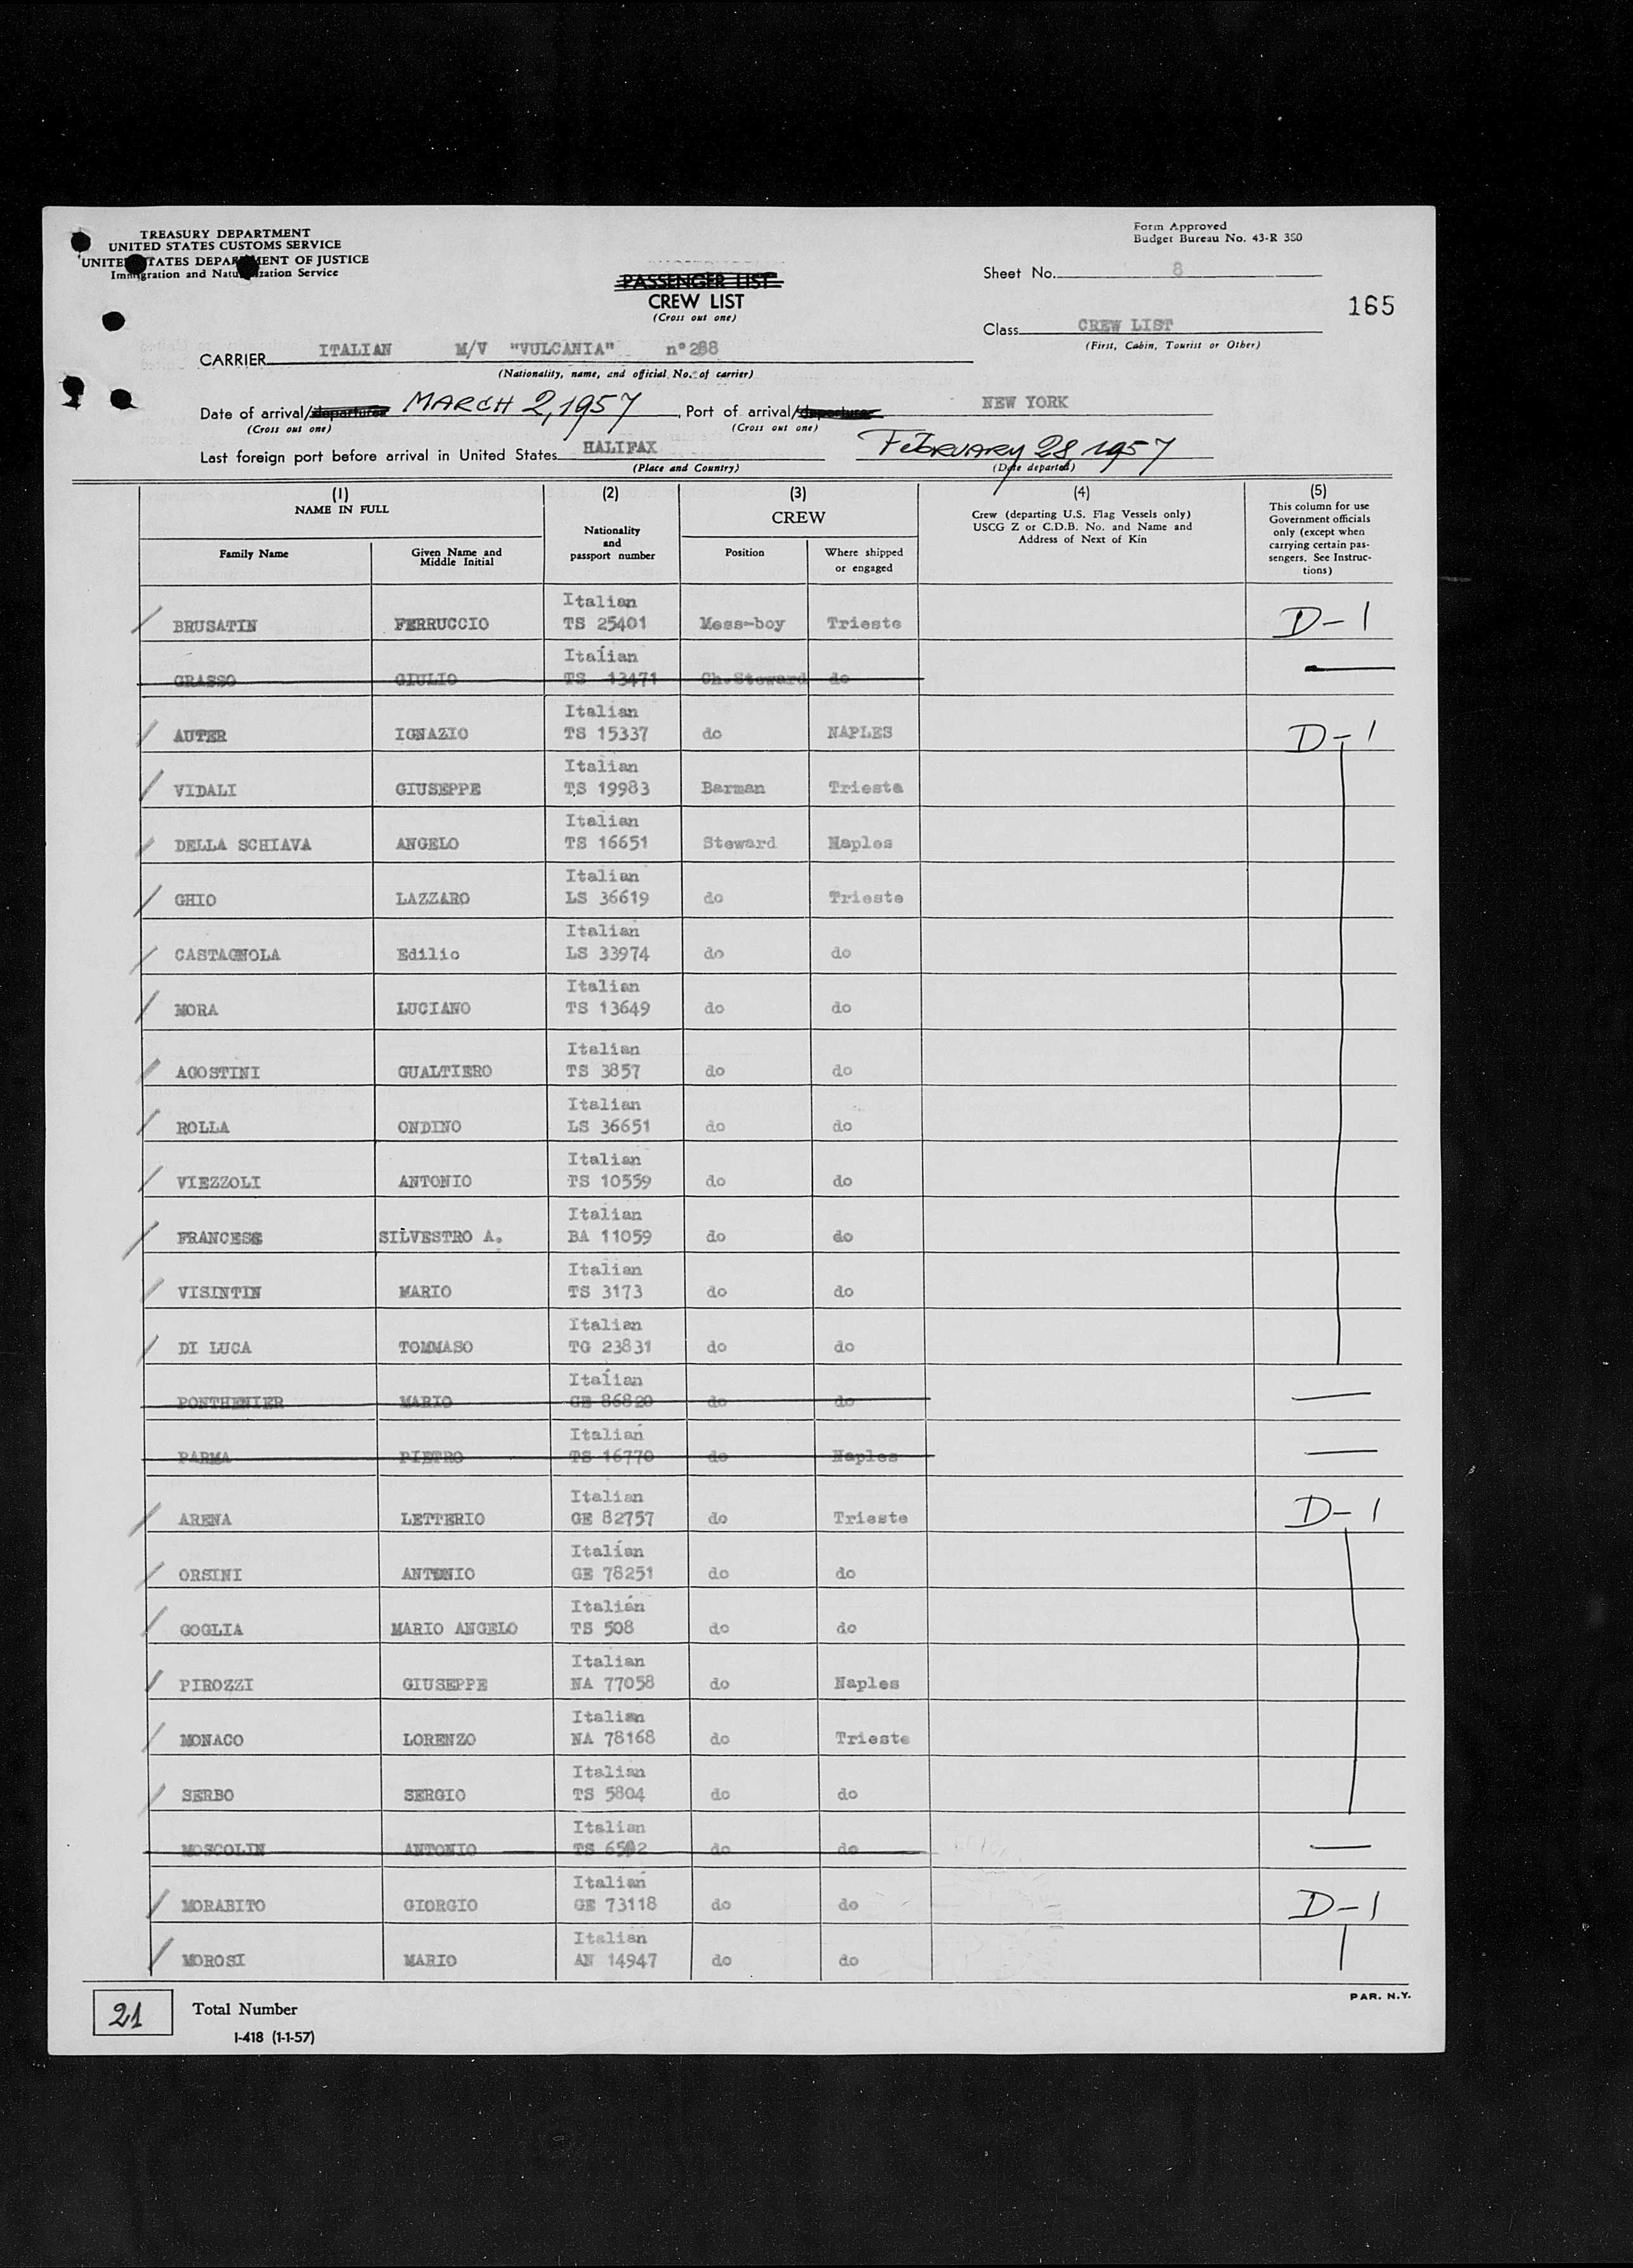 TREASURY DEPARTMENT
UNITED STATES CUSTOMS SERVICE
UNITED STATES DEPARTMENT OF JUSTICE
Immigration and Naturalization Service
Form Approved
Budget Bureau No. 43-R 380
Sheet No. 8
165
PASSENGER LIST
CREW LIST
(Cross out one)
Class CREW LIST
(First, Cabin, Tourist or Other)
CARRIER ITALIAN M/V "VULCANIA" n° 288
(Nationality, name, and official No. of carrier)
Date of arrival/departure MARCH 2, 1957, Port of arrival/departure NEW YORK
(Cross out one) (Cross out one)
Last foreign port before arrival in United States HALIFAX FEBRUARY 28 1957
(Place and Country) (Date departed)
(1) (2) (3) (4) (5)
NAME IN FULL
Nationality and passport number
CREW
Crew (departing U.S. Flag Vessels only)
USCG Z or C.D.B. No. and Name and
Address of Next of Kin
This column for use
Government officials
only (except when
carrying certain pas-
sengers. See Instruc-
tions)
Family Name Given Name and Middle Initial Position Where shipped or engaged
Italian
BRUSATIN FERRUCCIO TS 25401 Mess-boy Trieste D-1
Italian
GRASSO GIULIO TS 13471 Ch.Steward do
Italian
AUTER IGNAZIO TS 15337 do NAPLES D-1
Italian
VIDALI GIUSEPPE TS 19983 Barman Trieste
Italian
DELLA SCHIAVA ANGELO TS 16651 Steward Naples
Italian
GHIO LAZZARO LS 36619 do Trieste
Italian
CASTAGNOLA Edilio LS 33974 do do
Italian
MORA LUCIANO TS 13649 do do
Italian
AGOSTINI GUALTIERO TS 3857 do do
Italian
ROLLA ONDINO LS 36651 do do
Italian
VIEZZOLI ANTONIO TS 10559 do do
Italian
FRANCESE SILVESTRO A. BA 11059 do do
Italian
VISINTIN MARIO TS 3173 do do
Italian
DI LUCA TOMMASO TG 23831 do do
Italian
PONTHENIER MARIO GE 86820 do do
Italian
PARMA PIETRO TS 16770 do Naples
Italian
ARENA LETTERIO GE 82757 do Trieste D-1
Italian
ORSINI ANTONIO GE 78251 do do
Italian
GOGLIA MARIO ANGELO TS 508 do do
Italian
PIROZZI GIUSEPPE NA 77058 do Naples
Italian
MONACO LORENZO NA 78168 do Trieste
Italian
SERBO SERGIO TS 5804 do do
Italian
MOSCOLIN ANTONIO TS do do
Italian
MORABITO GIORGIO GE 73118 do do D-1
Italian
MOROSI MARIO AN 14947 do do
PAR. N.Y.
21 Total Number
I-418 (1-1-57)